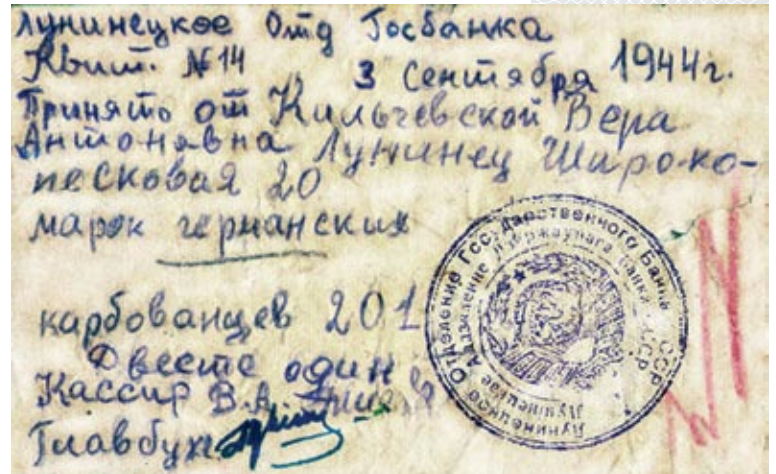 Лунинецкое Отд Госбанка
Квит. № 14 3 Сентября 1944г.
Принято от Кильчевской Вера
Антонавна Лунинец Широко-
песковая 20
марок германских
карбованцев 201
Двести один
Кассир В.А.
Главбух
Лунинецкое Отделение Государственного Банка СССР
Лунiнецкае Аддзяленне Дзяржаунага Банка СССР